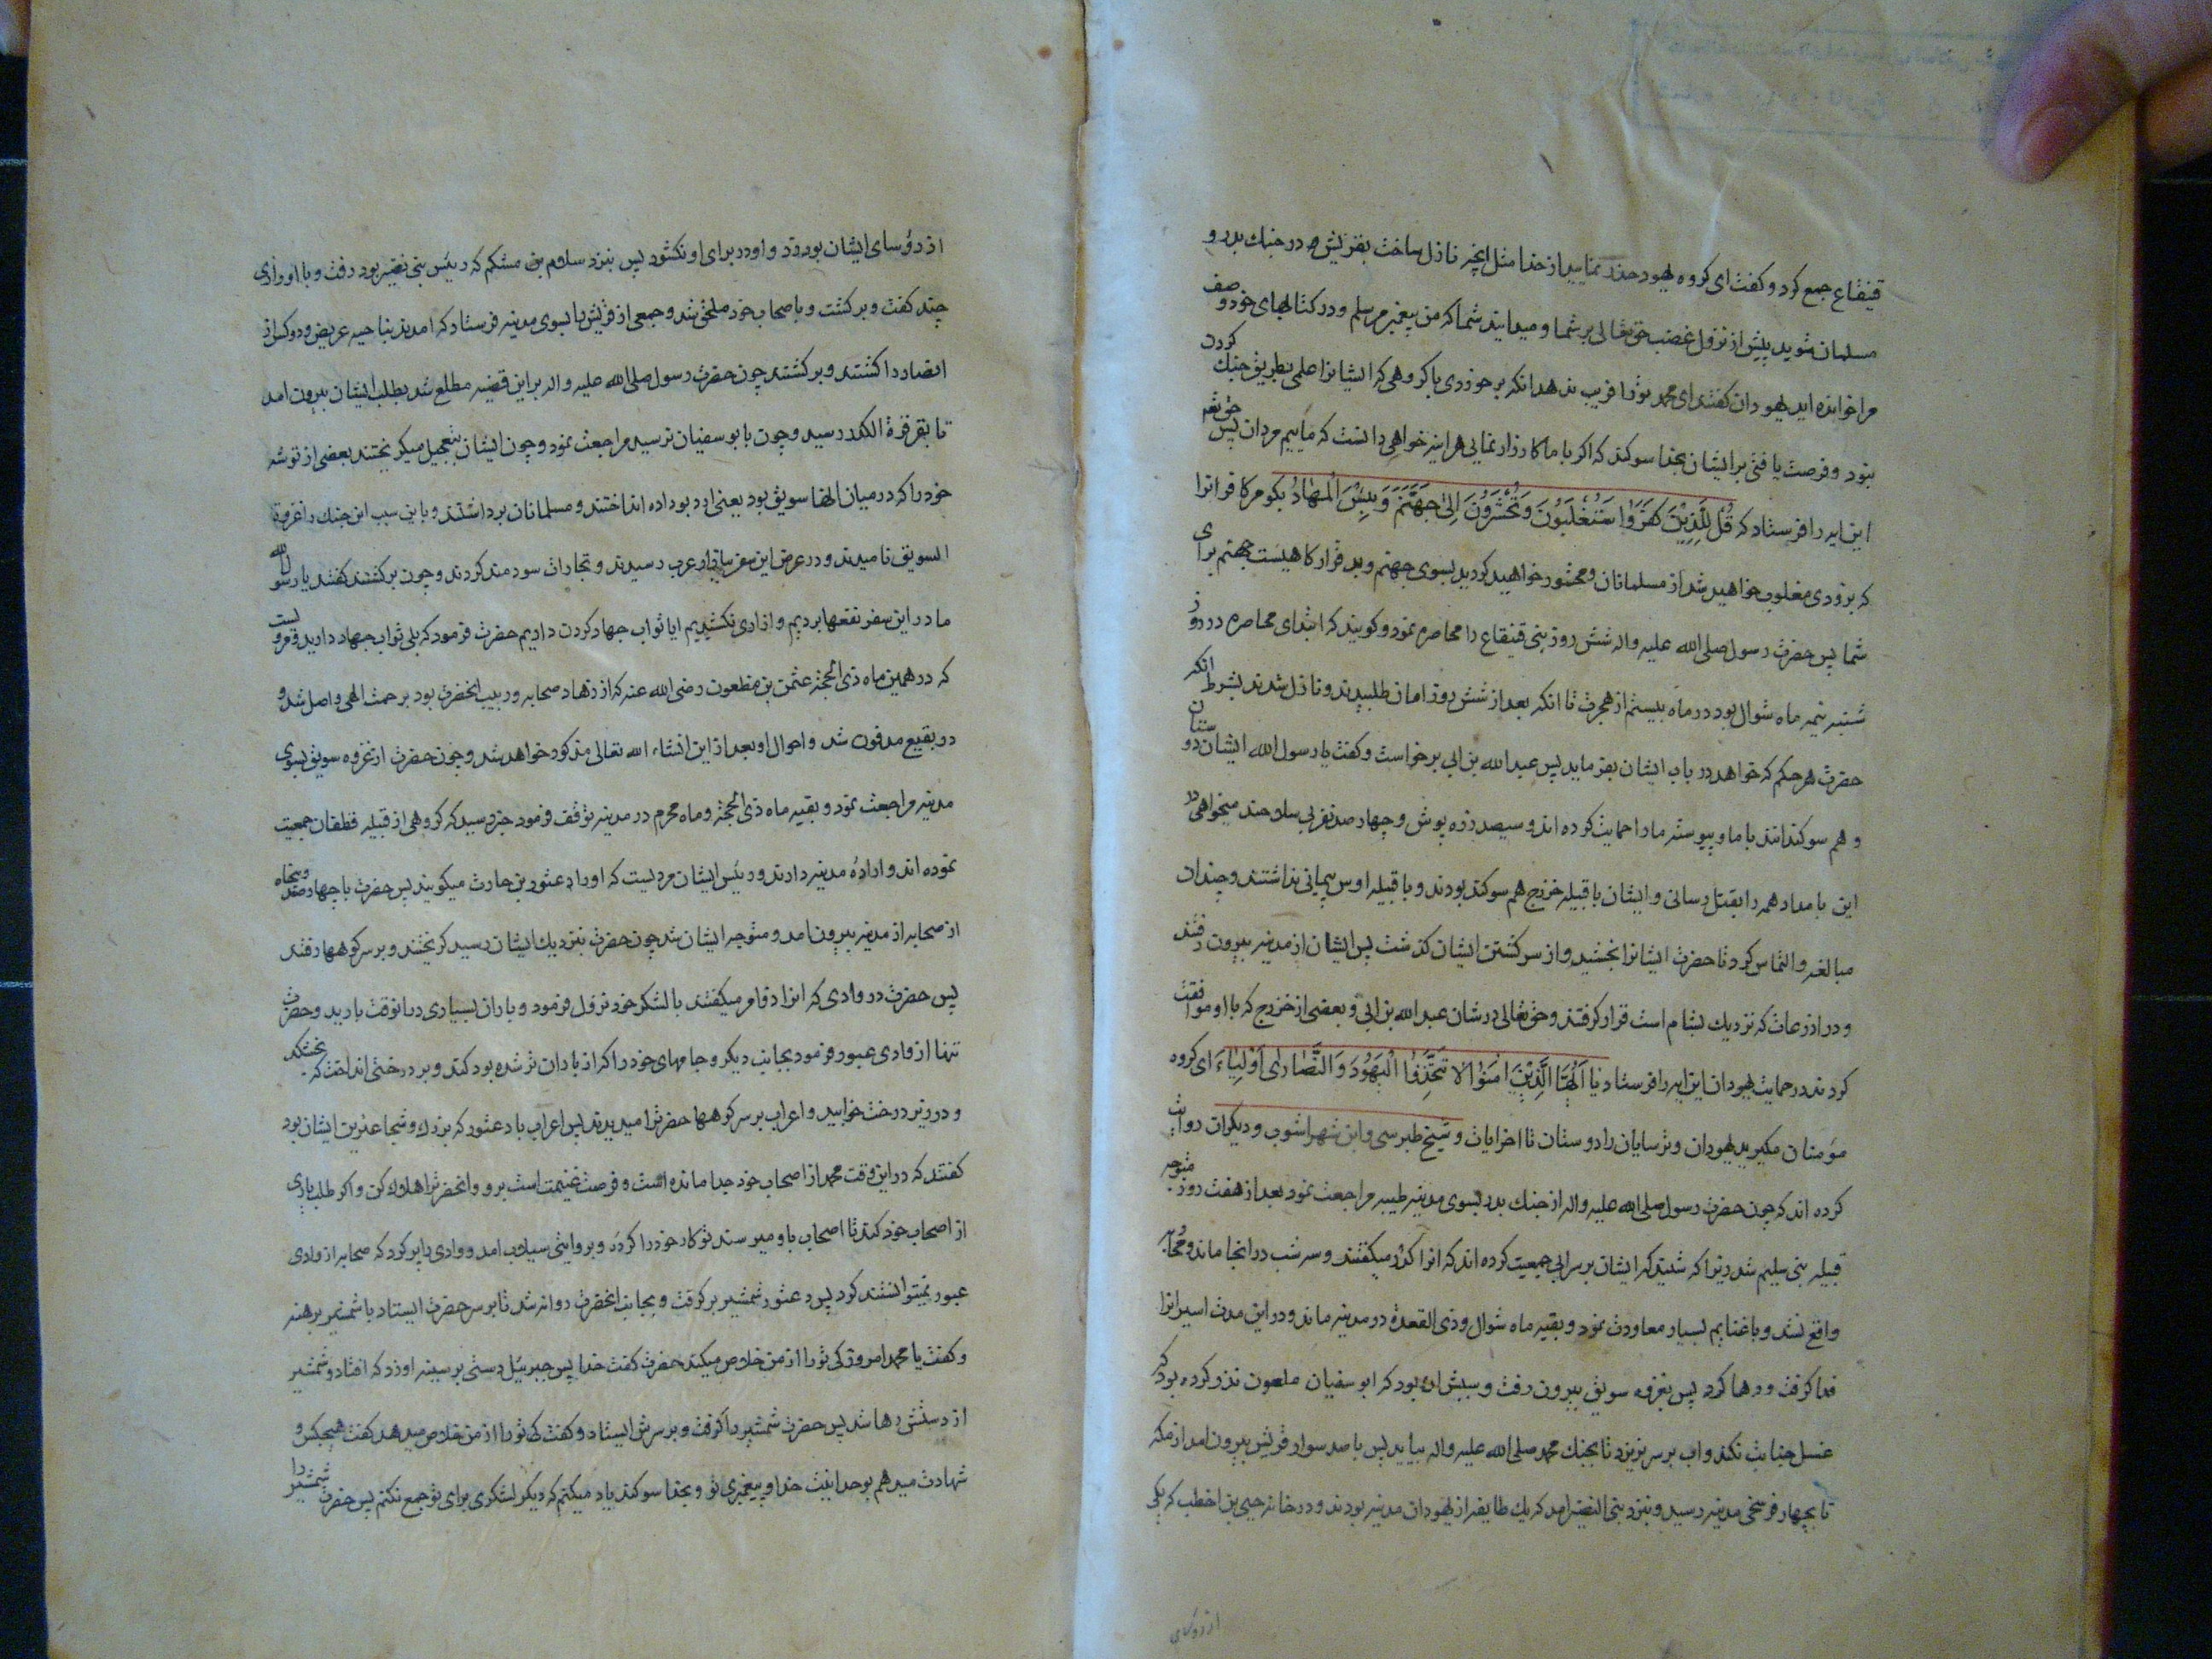 قنیقاع جمع کرد و کفت ای کروه یهود حذر نمایید از خدا مثل انچه نازل ساخت بقریش در جنك بدر و
مسلمان شوید پیش از نزول غضب حق تعالی بر شما و میدانید شما که من پیغمبر مرسلم و در کتابهای خود وصف
مرا خوانده اید یهودان کفتند ای محمد تو را فریب ندهد انکه برخوردی با کروهی که ایشانرا علمی بطریق جنك کردن
نبود و فرصت یافتی بر ایشان بخدا سوکند که اکر با ما کارزار نمایی هراینه خواهی دانست که ماییم مردان پس حق تعم
این ایه را فرستاد که قُل لِلَّذِیْنَ کَفَرُوا سَتُغْلَبُونَ وَتُحْشَرُونَ اِلیٰ جَهَنَّمَ وَبِئْسَ الْمِهَادُ بکو مر کافرانرا
که بزودی مغلوب خواهید شد از مسلمانان و محشور خواهید کردید بسوی جهنم و بد قرارکاهیست جهنم برای
شما پس حضرت رسول صلی الله علیه واله شش روز بنی قینقاع را محاصره نمود و کویند که ابتدای محاصره در روز
شنبه نیمه ماه شوال بود در ماه بیستم از هجرت تا انکه بعد از شش روز امان طلبیدند و نازل شدند بشرط انکه
حضرت هر حکم که خواهد در باب ایشان بفرماید پس عبد الله بن ابی برخواست و کفت یا رسول الله ایشان دوستان
و هم سوکندانند با ما و پیوسته ما را حمایت کرده اند و سیصد زره پوش و چهار صد نفر بی سلاحند میخواهی در
این بامداد همه را بقتل رسانی و ایشان با قبیله خزرج هم سوکند بودند و با قبیله اوس پیمانی نداشتند و چندان
مبالغه و التماس کرد تا حضرت ایشانرا بخشید و از سر کشتن ایشان کذشت پس ایشان از مدینه بیرون رفتند
و در اذرعات که نزدیك بشام است قرار کرفتند و حق تعالی در شان عبد الله بن ابی و بعضی از خزرج که با او موافقت
کردند در حمایت یهودان این ایه را فرستاد یٰا اَیُّهَا الَّذِیْنَ اٰمَنُوْا لا تَتَّخِذُوا الْیَهُوْدَ وَ النَّصَاریٰ اَوْلِیٰاءَ ای کروه
مؤمنان مکیرید یهودان و ترسایان را دوستان تا اخر ایات و شیخ طبرسی و ابن شهراشوب و دیکران روایت
کرده اند که چون حضرت رسول صلی الله علیه واله از جنك بدر بسوی مدینه طیبه مراجعت نمود بعد از هفت روز متوجه
قبیله بنی سلیم شد زیرا که شنید که ایشان بر سر ابی جمعیت کرده اند که انرا کدر میکفتند و سه شب در انجا ماند و محاربه
واقع نشد و با غنایم بسیار معاودت نمود و بقیه ماه شوال و ذی القعدة در مدینه ماند و در این مدت اسیرانرا
فدا کرفت و رها کرد پس بغزوه سویق بیرون رفت و سببش ان بود که ابو سفیان ملعون نذر کرده بود که
غسل جنابت نکند و اب بر سر نریزد تا بجنك محمد صلی الله علیه واله بیاید پس با صد سوار قریش بیرون امد از مکه
تا بچهار فرسخی مدینه رسید و بنزد بنی النضیر امد که یك طایفه از یهودان مدینه بودند و در خانه حیی بن اخطب که یکی
از رؤسای
از رؤسای ایشان بود زد و او در برای او نکشود پس بنزد سلام بن مشکم که رئیس بنی نضیر بود رفت و با او رازی
چند کفت و برکشت و باصحاب خود ملحق شد و جمعی از قریش را بسوی مدینه فرستاد که امدند بناحیه عریض و دو کس از
انصار را کشتند و برکشتند چون حضرت رسول صلی الله علیه واله بر این قضیه مطلع شد بطلب ایشان بیرون امد
تا بقرقرة الکدر رسید و چون بابو سفیان نرسید مراجعت نمود و چون ایشان بتعجیل میکریختند بعضی از توشه
خود را که در میان انها سویق بود یعنی ارد بو داده انداختند و مسلمانان برداشتند و باین سبب این جنك را غزوة
السویق نامیدند و در عرض این سفر ببازار عرب رسیدند و تجارات سودمند کردند و چون برکشتند کفتند یا رسول الله
ما در این سفر نفعها بردیم و ازاری نکشیدیم ایا ثواب جهاد کردن داریم حضرت فرمود که بلی ثواب جهاد دارید و مرویست
که در همین ماه ذی الحجة عثمن بن مظعون رضی الله عنه که از زهاد صحابه و ربیب انحضرت بود برحمت الهی واصل شد و
در بقیع مدفون شد و احوال او بعد از این انشاء الله تعالی مذکور خواهد شد و چون حضرت از غزوه سویق بسوی
مدینه مراجعت نمود و بقیه ماه ذی الحجة و ماه محرم در مدینه توقف فرمود خبر رسید که کروهی از قبیله غطفان جمعیت
نموده اند و ارادۀ مدینه دارند و رئیس ایشان مردیست که او را دعثور بن حارث میکویند پس حضرت با چهار صد و پنجاه
از صحابه از مدینه بیرون امد و متوجه ایشان شد چون حضرت بنزدیك ایشان رسید کریختند و بر سر کوهها رفتند
پس حضرت در وادی که انرا ذو امر میکفتند با لشکر خود نزول فرمود و باران بسیاری در انوقت بارید و حضرت
تنها از وادی عبور فرمود بجانب دیکر و جامهای خود را که از باران تر شده بود کند و بر درختی انداخت که بخشکد
و در زیر درخت خوابید و اعراب بر سر کوهها حضرترا میدیدند پس اعراب با دعثور که بزرك و شجاعترین ایشان بود
کفتند که در این وقت محمد از اصحاب خود جدا مانده است و فرصت غنیمت است برو و انحضرترا هلاك کن و اکر طلب یاری
از اصحاب خود کند تا اصحاب باو میرسند تو کار خود را کردۀ و بروایتی سیلاب امد و وادی را پر کرد که صحابه از وادی
عبور نمیتوانستند کرد پس دعثور شمشیر برکرفت و بجانب انحضرت روانه شد تا بر سر حضرت ایستاد با شمشیر برهنه
و کفت یا محمد امروز کی تو را از من خلاص میکند حضرت کفت خدا پس جبرئیل دستی بر سینه او زد که افتاد و شمشیر
از دستش رها شد پس حضرت شمشیر را کرفت و بر سرش ایستاد و کفت کی تو را از من خلاص میدهد کفت هیچکس و
شهادت میدهم بوحدانیت خدا و پیغمبری تو و بخدا سوکند یاد میکنم که دیکر لشکری برای تو جمع نکنم پس حضرت شمشیر را